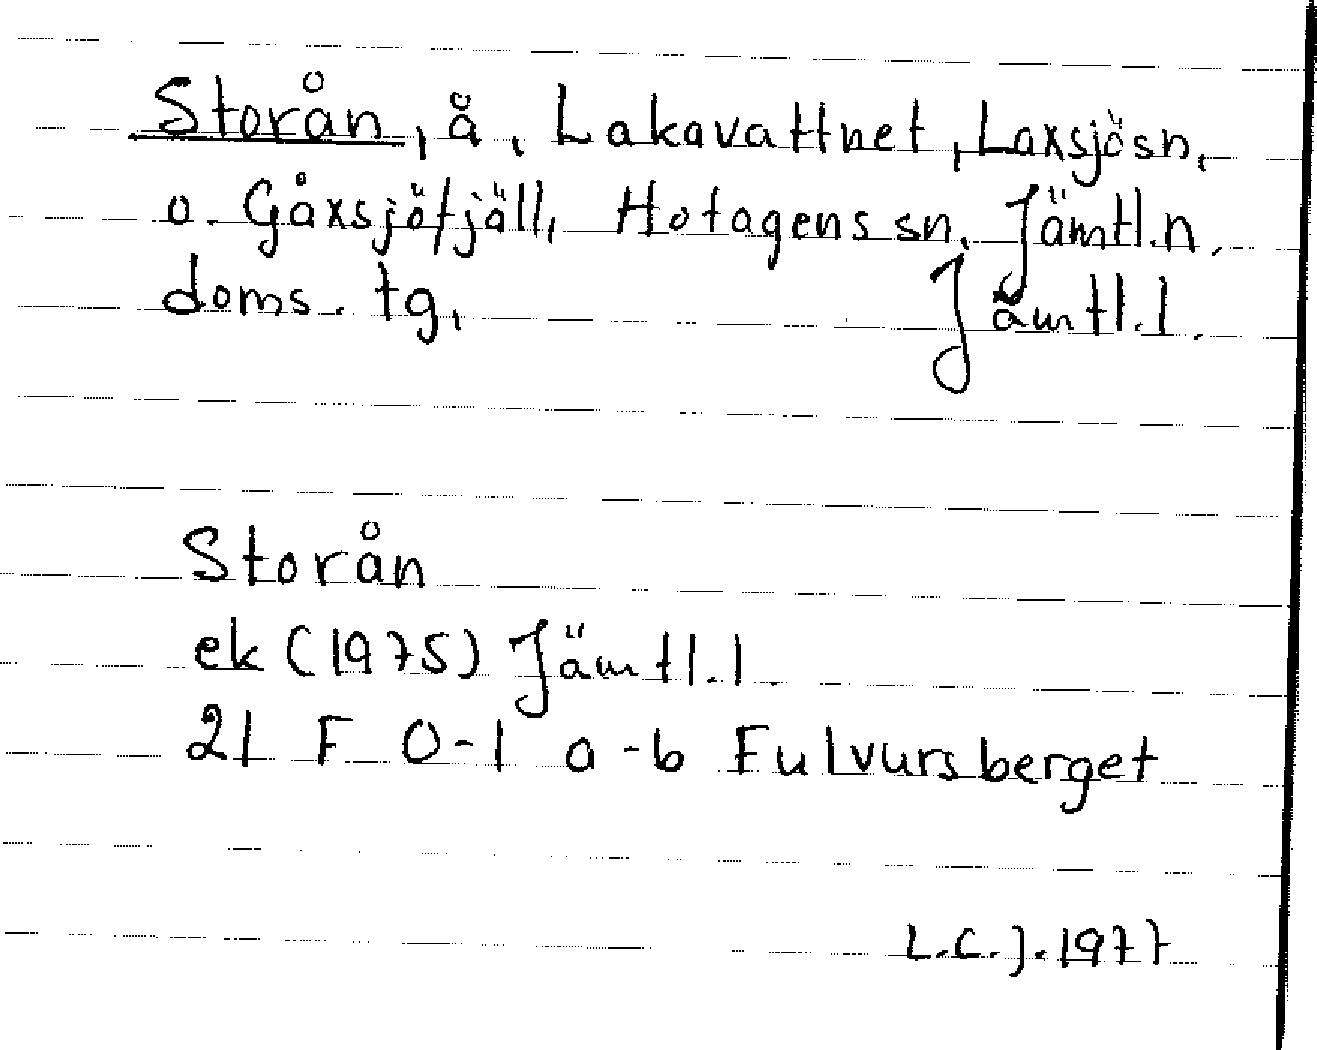 Storån, å, Lakavattnet, Laxsjösn,
o. Gåxsjöfjäll, Hotagens sn, Jämtl. n.
doms. tg, Jämtl. l.
Storån
ek (1975) Jämtl. l.
21 F 0-1 a-b Fulvursberget
L.C.J. 1977